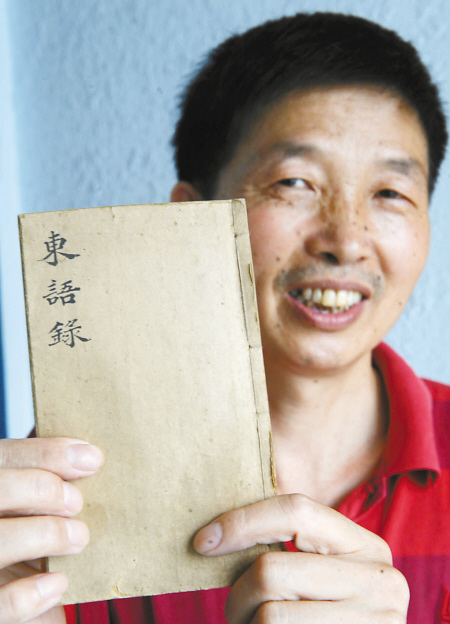 東語錄